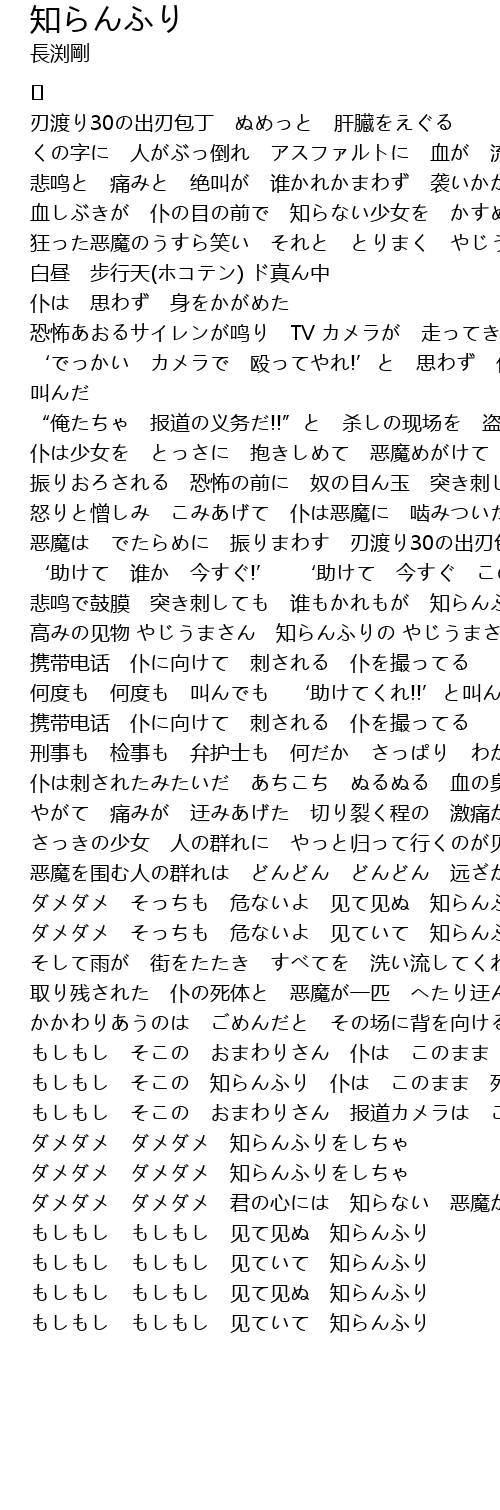 知らんふり
長渕剛
[]
刃渡り30の出刃包丁　ぬめっと　肝臓をえぐる
くの字に　人がぶっ倒れ　アスファルトに　血が　流
悲鸣と　痛みと　绝叫が　谁かれかまわず　袭いかか
血しぶきが　仆の目の前で　知らない少女を　かすめ
狂った恶魔のうすら笑い　それと　とりまく　やじう
白昼　步行天(ホコテン) ド真ん中
仆は　思わず　身をかがめた
恐怖あおるサイレンが鸣り　TV カメラが　走ってき
‘でっかい　カメラで　殴ってやれ!’と　思わず　仆
叫んだ
“俺たちゃ　报道の义务だ!!”と　杀しの现场を　盗
仆は少女を　とっさに　抱きしめて　恶魔めがけて
振りおろされる　恐怖の前に　奴の目ん玉　突き刺し
怒りと憎しみ　こみあげて　仆は恶魔に　啮みついた
恶魔は　でたらめに　振りまわす　刃渡り30の出刃包
‘助けて　谁か　今すぐ!’　　‘助けて　今すぐ　この
悲鸣で鼓膜　突き刺しても　谁もかれもが　知らんふ
高みの见物 やじうまさん　知らんふりの やじうまさ
携带电话　仆に向けて　刺される　仆を撮ってる
何度も　何度も　叫んでも　‘助けてくれ!!’と叫ん
携带电话　仆に向けて　刺される　仆を撮ってる
刑事も　检事も　弁护士も　何だか　さっぱり　わか
仆は刺されたみたいだ　あちこち　ぬるぬる　血の臭
やがて　痛みが　迂みあげた　切り裂く程の　激痛が
さっきの少女　人の群れに　やっと归って行くのが见
恶魔を囲む人の群れは　どんどん　どんどん　远ざか
ダメダメ　そっちも　危ないよ　见て见ぬ　知らんふ
ダメダメ　そっちも　危ないよ　见ていて　知らんふ
そして雨が　街をたたき　すべてを　洗い流してくれ
取り残された　仆の死体と　恶魔が一匹　へたり迂ん
かかわりあうのは　ごめんだと　その场に背を向ける
もしもし　そこの　おまわりさん　仆は　このまま
もしもし　そこの　知らんふり　仆は　このまま　死
もしもし　そこの　おまわりさん　报道カメラは　こ
ダメダメ　ダメダメ　知らんふりをしちゃ
ダメダメ　ダメダメ　知らんふりをしちゃ
ダメダメ　ダメダメ　君の心には　知らない　恶魔が
もしもし　もしもし　见て见ぬ　知らんふり
もしもし　もしもし　见ていて　知らんふり
もしもし　もしもし　见て见ぬ　知らんふり
もしもし　もしもし　见ていて　知らんふり